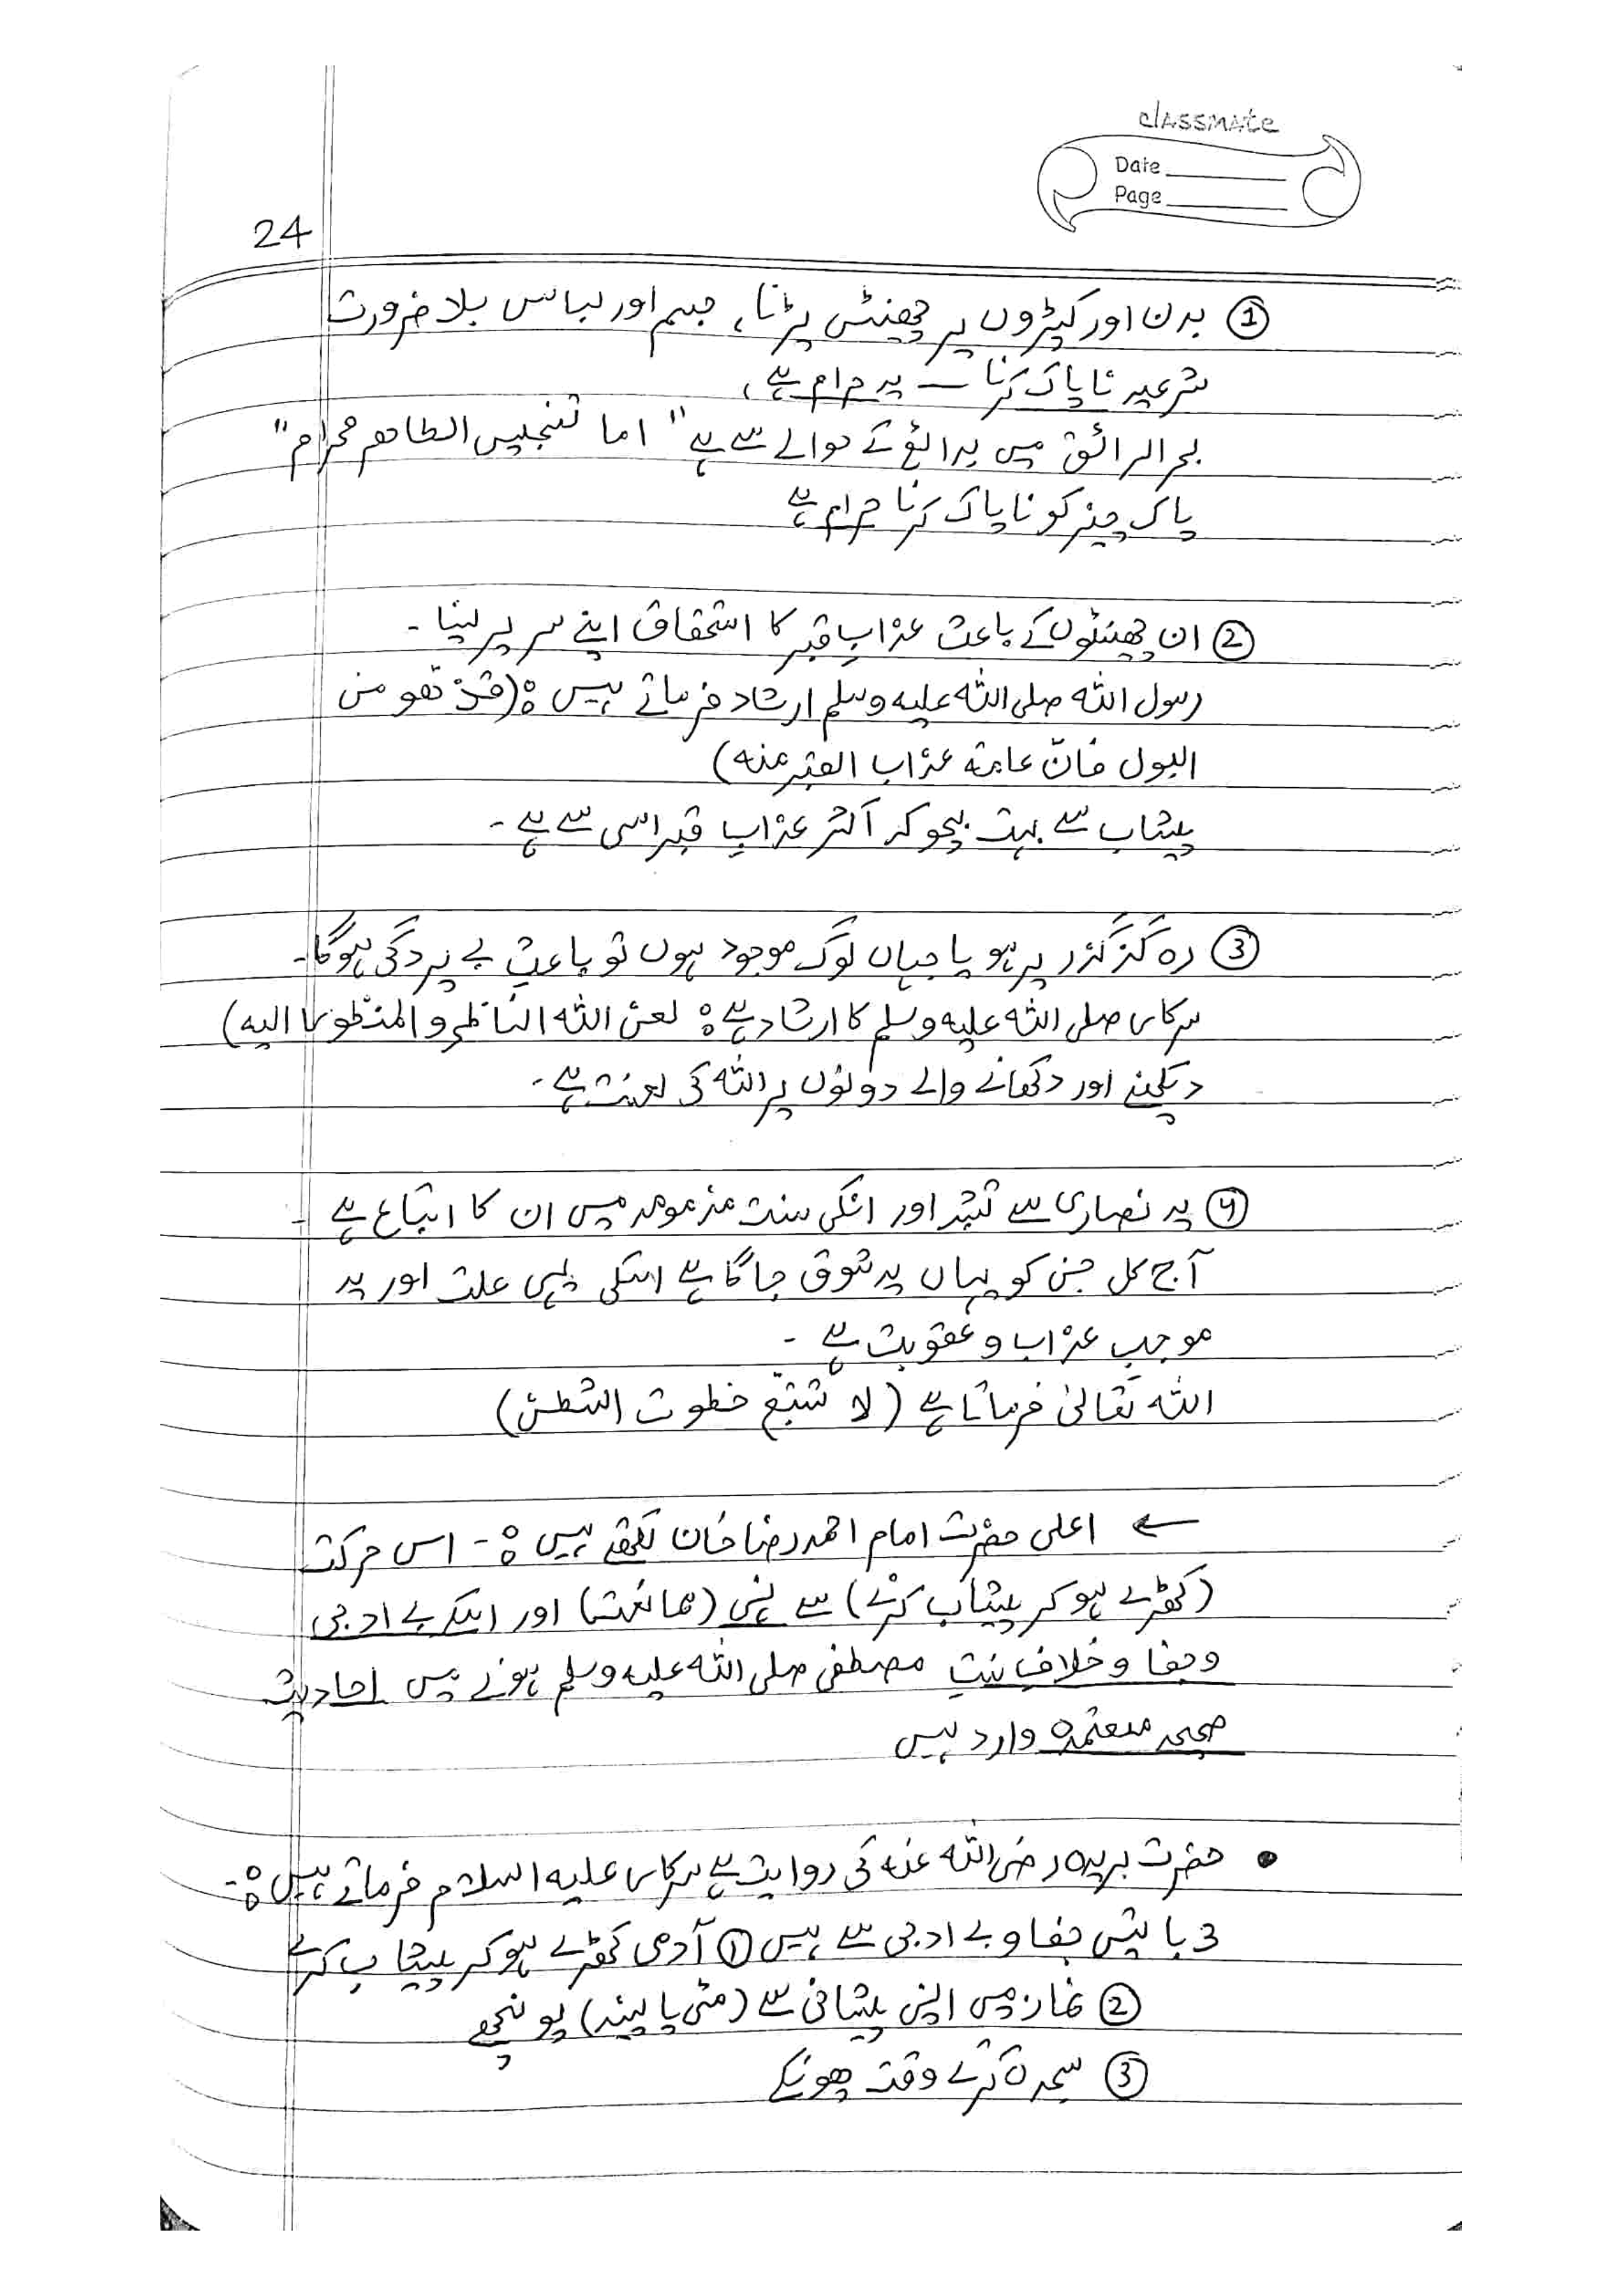 classmate
Date
Page
24
① بدن اور کپڑوں پر چھنٹیں پڑنا، جسم اور لباس بلا ضرورت
شرعیہ ناپاک کرنا — یہ حرام ہے،
بحر الرائق میں بدائع کے حوالے سے ہے " اما تنجیس الطاھر فحرام "
پاک چیز کو ناپاک کرنا حرام ہے
② ان چھینٹوں کے باعث عذابِ قبر کا استحقاق اپنے سر پر لینا -
رسول اللہ صلی اللہ علیہ وسلم ارشاد فرماتے ہیں : (تنزھو من
البول فانّ عامۃ عذاب القبر منہ)
پیشاب سے بہت بچو کہ اکثر عذابِ قبر اسی سے ہے -
③ رہ گزگزر پر ہو یا جہاں لوگ موجود ہوں تو باعثِ بے پردگی ہوگا -
سرکار صلی اللہ علیہ وسلم کا ارشاد ہے : لعن اللہ الناظر و المنظور الیہ)
دیکھنے اور دکھانے والے دونوں پر اللہ کی لعنت ہے -
④ یہ نصاری سے تشبہ اور انکی سنت مذمومہ میں ان کا اتباع ہے -
آج کل جن کو یہاں یہ شوق جاگا ہے اسکی یہی علت اور یہ
موجبِ عذاب و عقوبت ہے -
اللہ تعالیٰ فرماتا ہے ( لا تتبع خطوت الشیطن)
← اعلی حضرت امام احمد رضا خان لکھتے ہیں :- اس حرکت
(کھڑے ہو کر پیشاب کرنے) سے نہی (ممانعت) اور اسکے بے ادبی
و جفا و خلافِ سنتِ مصطفی صلی اللہ علیہ وسلم ہونے میں احادیث
صحیحہ معتمدہ وارد ہیں
• حضرت بریدہ رضی اللہ عنہ کی روایت ہے سرکار علیہ السلام فرماتے ہیں :-
3 باتیں جفا و بے ادبی سے ہیں ① آدمی کھڑے ہو کر پیشاب کرے
② نماز میں اپنی پیشانی سے (مٹی یا پسینہ) پونچھے
③ سجدہ کرتے وقت پھونکے